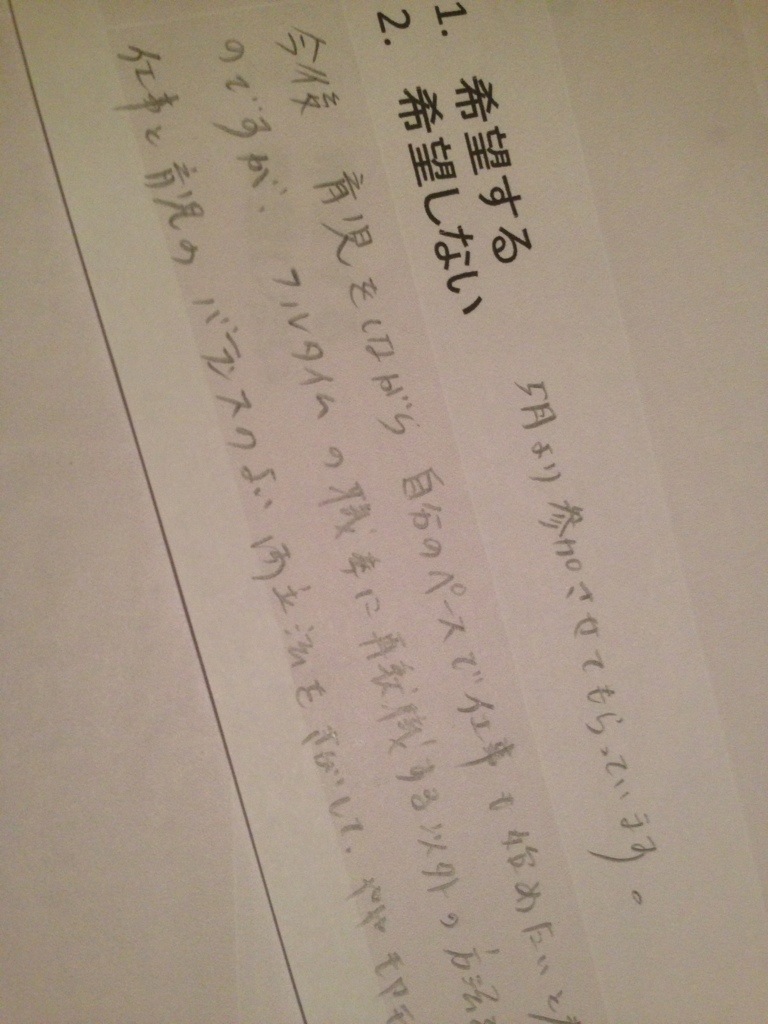 1. 希望する
2. 希望しない
5月より参加させてもらっています。
今後 育児をしながら自分のペースで仕事も始めたいと
のですが、フルタイムの職業に再就職する以外の方法
仕事と育児のバランスのよい両立法をさがして、